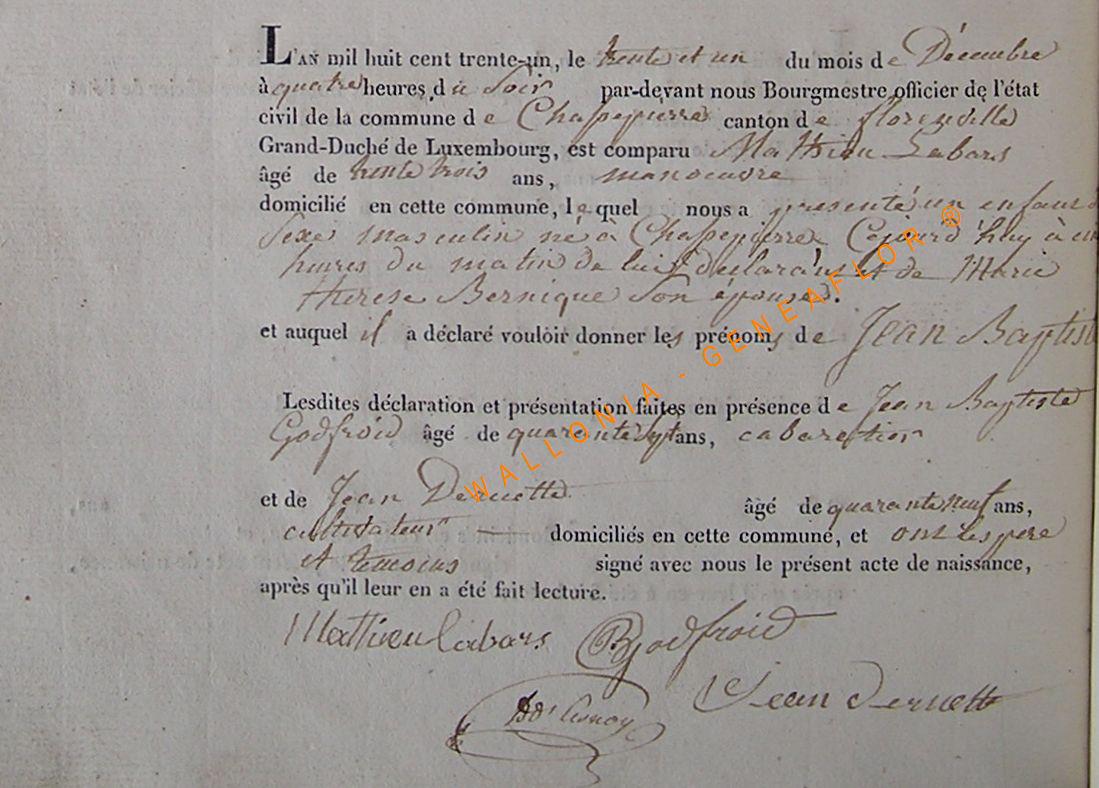 L'AN mil huit cent trente-un, le trente et un du mois de Décembre
à quatre heures du Soir par-devant nous Bourgmestre officier de l'état
civil de la commune de Chassepierre canton de florenville
Grand-Duché de Luxembourg, est comparu Mathieu Labars
âgé de trente trois ans, manoeuvre
domicilié en cette commune, lequel nous a presenté un enfant
Sexe masculin né a Chassepierre Cejourd'huy à
heures du matin de lui declarant et de Marie
therese Bernique Son épouse.
et auquel il a déclaré vouloir donner les prénoms de Jean Baptiste
Lesdites déclaration et présentation faites en présence de Jean Baptiste
Godfroid âgé de quarante sept ans, cabaretier
et de Jean Dernette âgé de quarante neuf ans,
cultivateur domiciliés en cette commune, et ont les pere
et temoins signé avec nous le présent acte de naissance,
après qu'il leur en a été fait lecture.
Mathieu labars
JB Godfroid
Jean Dernette
WALLONIA - GENEAFLOR ®